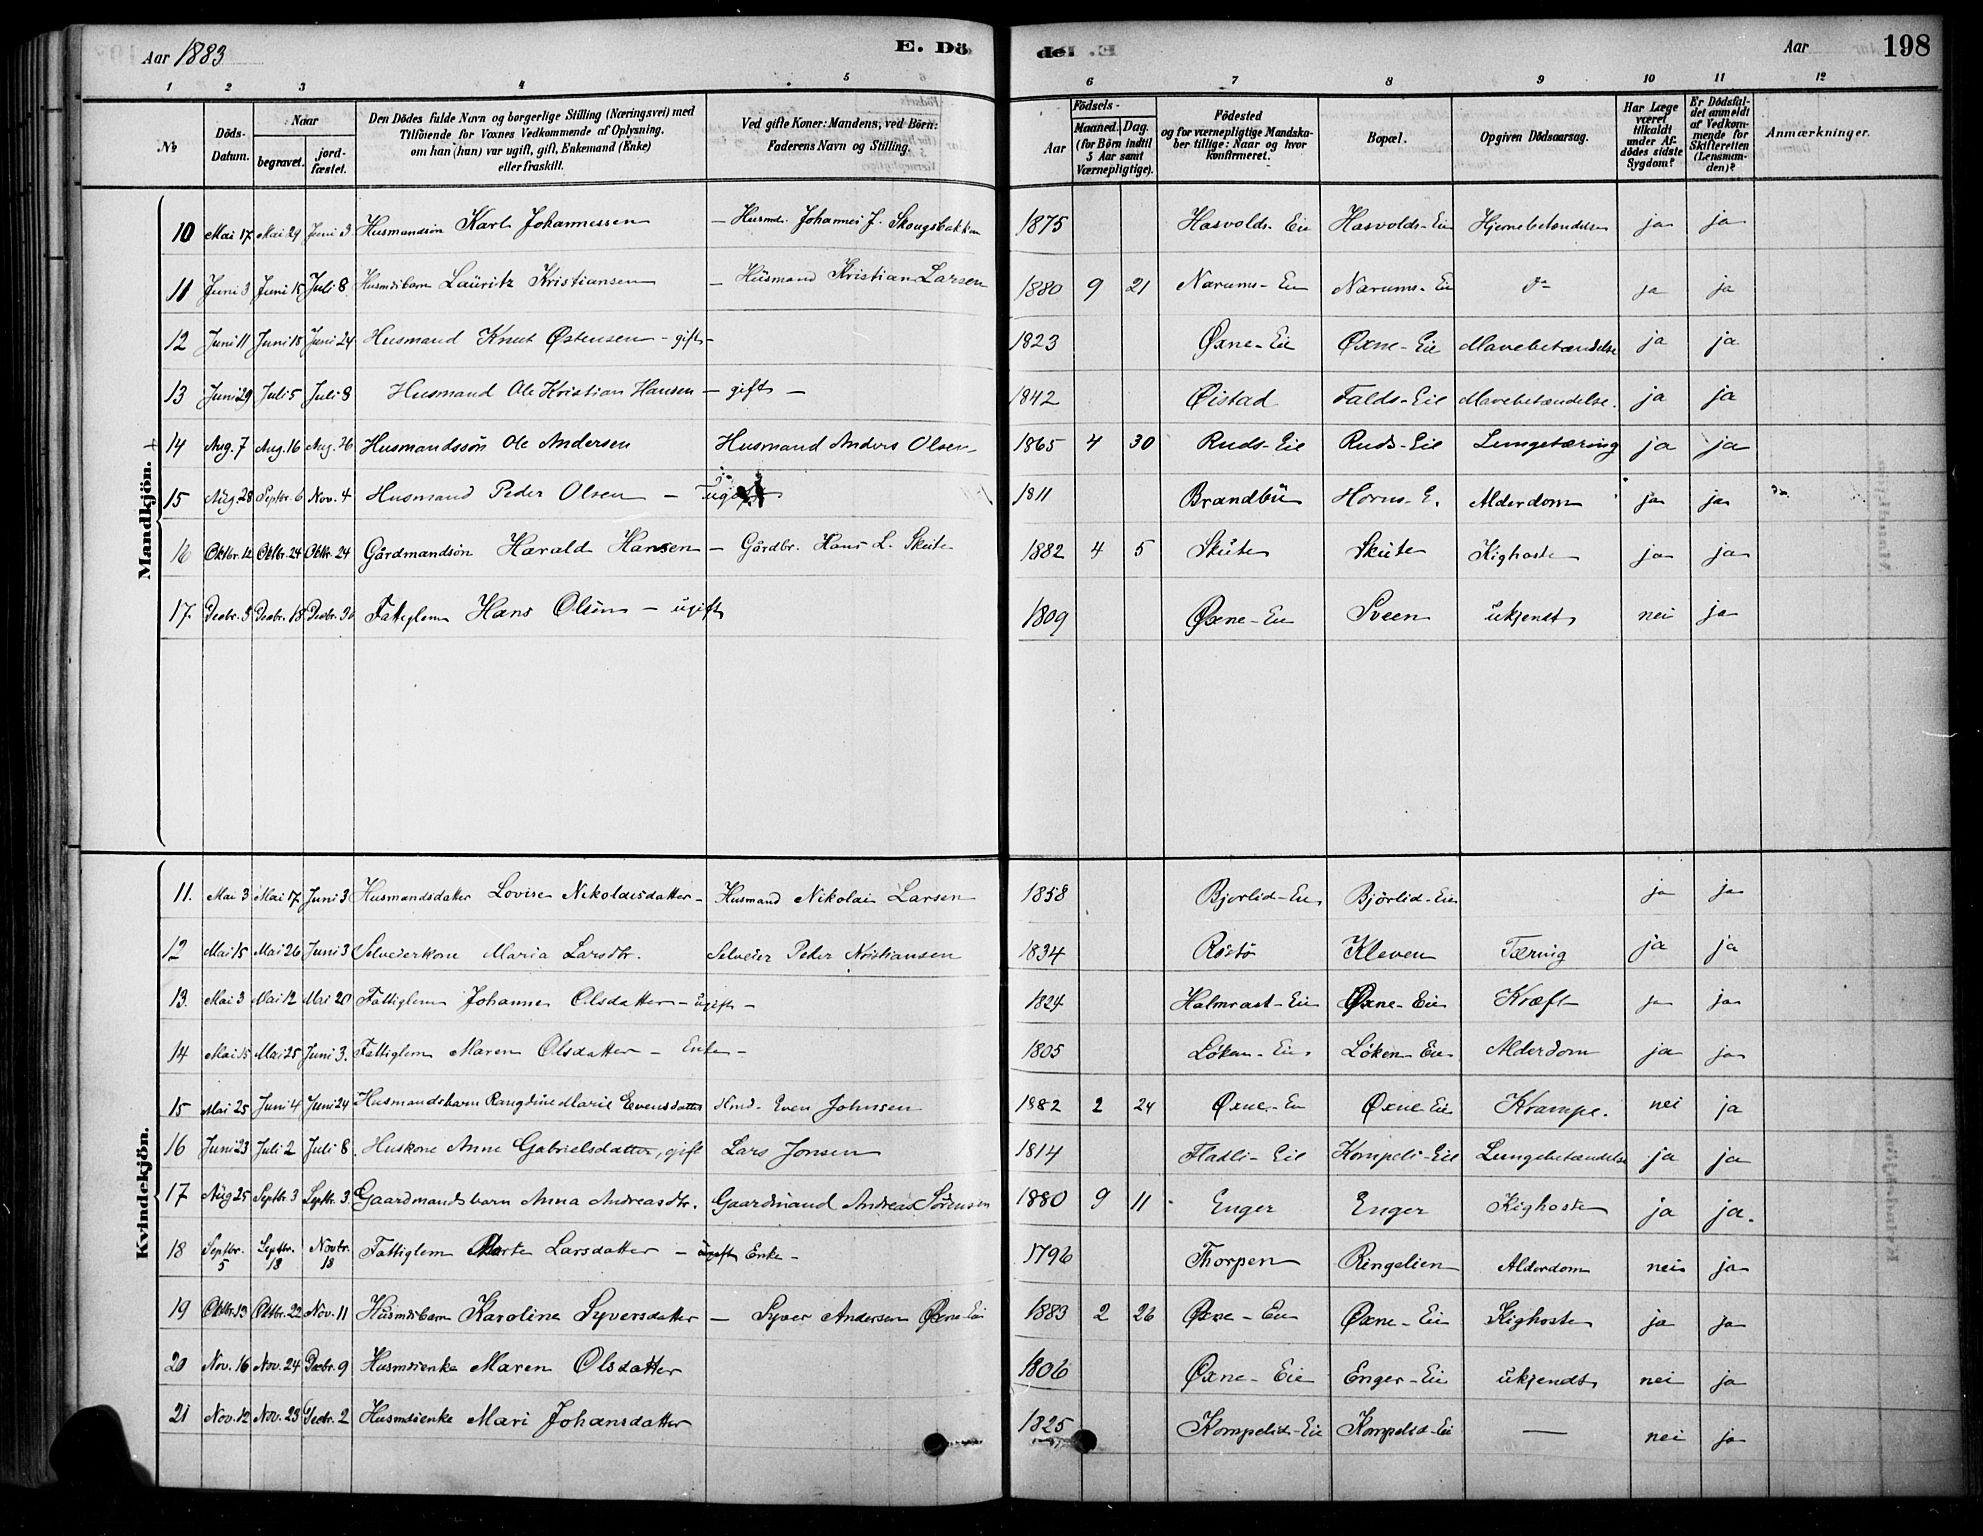 Aar 1883
E. Dö
de. E
Aar
198
1 2 3 4 5 6 7 8 9 10 11 12
№
Döds-Datum.
Naar
begravet.
jord-fæstet.
Den Dödes fulde Navn og borgerlige Stilling (Næringsvei) med
Tilföiende for Voxnes Vedkommende af Oplysning,
om han (hun) var ugift, gift, Enkemand (Enke)
eller fraskilt.
Ved gifte Koner: Mandens, ved Börn:
Faderens Navn og Stilling.
Födsels-
Aar
Maaned. Dag.
(for Börn indtil
5 Aar samt
Værnepligtige).
Födested
og for værnepligtige Mandska-
ber tillige: Naar og hvor
konfirmeret.
Bopæl.
Opgiven Dödsaarsag.
Har Læge
været
tilkaldt
under Af-
dödes sidste
Sygdom?
Er Dödsfal-
det anmeldt
af Vedkom-
mende for
Skifteretten
(Lensman-
den)?
Anmærkninger.
Mandkjön.
10 Mai 17 Mai 29 Juni 3 Husmandsön Karl Johannessen – Husmd. Johannes J. Skougsbakken 1875 Hasvolds-Eie Hasvolds-Eie Hjernebetændelse ja ja
11 Juni 3 Juni 15 Juli 8 Husmdsbarn Lauritz Kristiansen – Husmand Kristian Larsen 1880 9 21 Narums-Eie Narums-Eie do ja ja
12 Juni 11 Juni 18 Juni 24 Husmand Knut Østensen – gift – 1823 Øxne-Eie Øxne-Eie Mavebetændelse ja ja
13 Juni 29 Juli 5 Juli 8 Husmand Ole Kristian Hansen – gift – 1842 Øistad Falds-Eie Mavebetændelse. ja ja
+ 14 Aug. 7 Aug. 16 Aug. 26 Husmandssön Ole Andersen Husmand Anders Olsen 1865 4 30 Ruds-Eie Ruds-Eie Lungetæring ja ja
15 Aug. 28 Septbr. 6 Nov. 4 Husmand Peder Olsen – 1811 Brandbu Horns-E. Alderdom ja ja
16 Oktbr. 12 Oktbr. 24 Oktbr. 24 Gårdmandsön Harald Hansen – Gårdbr. Hans L. Skute 1882 4 5 Skute Skute Kighoste ja ja
17. Decbr. 8 Decbr. 18 Decbr. 30 Fattiglem Hans Olsen – ugift 1809 Øxne-Eie Sveen ukjendt nei ja
Kvindekjön.
11. Mai 3 Mai 17 Juni 3 Husmandsdatter Lovise Nikolaisdatter – Husmand Nikolai Larsen 1858 Bjorlid-Eie Bjørlid-Eie ja ja
12 Mai 15 Mai 26 Juni 3 Selveierkone Maria Larsdtr. Selveier Peder Kristiansen 1834 Røstø Kleven Tæring ja ja
13. Mai 3 Mai 12 Mai 20 Fattiglem Johanne Olsdatter – ugift – 1824 Halmrast-Eie Øxne-Eie Kræft ja ja
14 Mai 15 Mai 25 Juni 3. Fattiglem Maren Olsdatter – Enke – 1805 Løken-Eie Løken-Eie Alderdom ja ja
15 Mai 25 Juni 4 Juni 24 Husmandsbarn Rangdine Marie Evensdatter Hmd. Even Johnsen 1882 2 24 Øxne-Eie Øxne-Eie Krampe. nei ja
16 Juni 23 Juli 2 Juli 8. Huskone Anne Gabrielsdatter, gift Lars Jonsen 1814 Fladli-Eie Kompeli-Eie Lungebetændelse ja ja
17 Aug 25 Septbr. 3 Septbr. 3 Gaardmandsbarn Anna Andreasdtr. Gaardmand Andreas Sørensen 1880 9 11 Enger Enger Kighoste ja ja.
18 Septbr. 5 Septbr. 18 Novbr. 18 Fattiglem Marte Larsdatter – ugift Enke – 1796 Thorpen Ringelien Alderdom nei ja
19 Oktbr. 13 Oktbr. 22 Nov. 11 Husmdsbarn Karoline Syversdatter – Syver Andersen Øxne-Eie 1883 2 26 Øxne-Eie Øxne-Eie Kighoste ja ja
20 Nov. 16 Nov. 24 Decbr. 9 Husmdsenke Maren Olsdatter 1806 Øxne-Eie Enger-Eie ukjendt nei ja
21 Nov. 12 Nov. 23 Decbr. 2 Husmdsenke Mari Johansdatter 1825 Kompelid-Eie Kompelid-Eie — nei ja